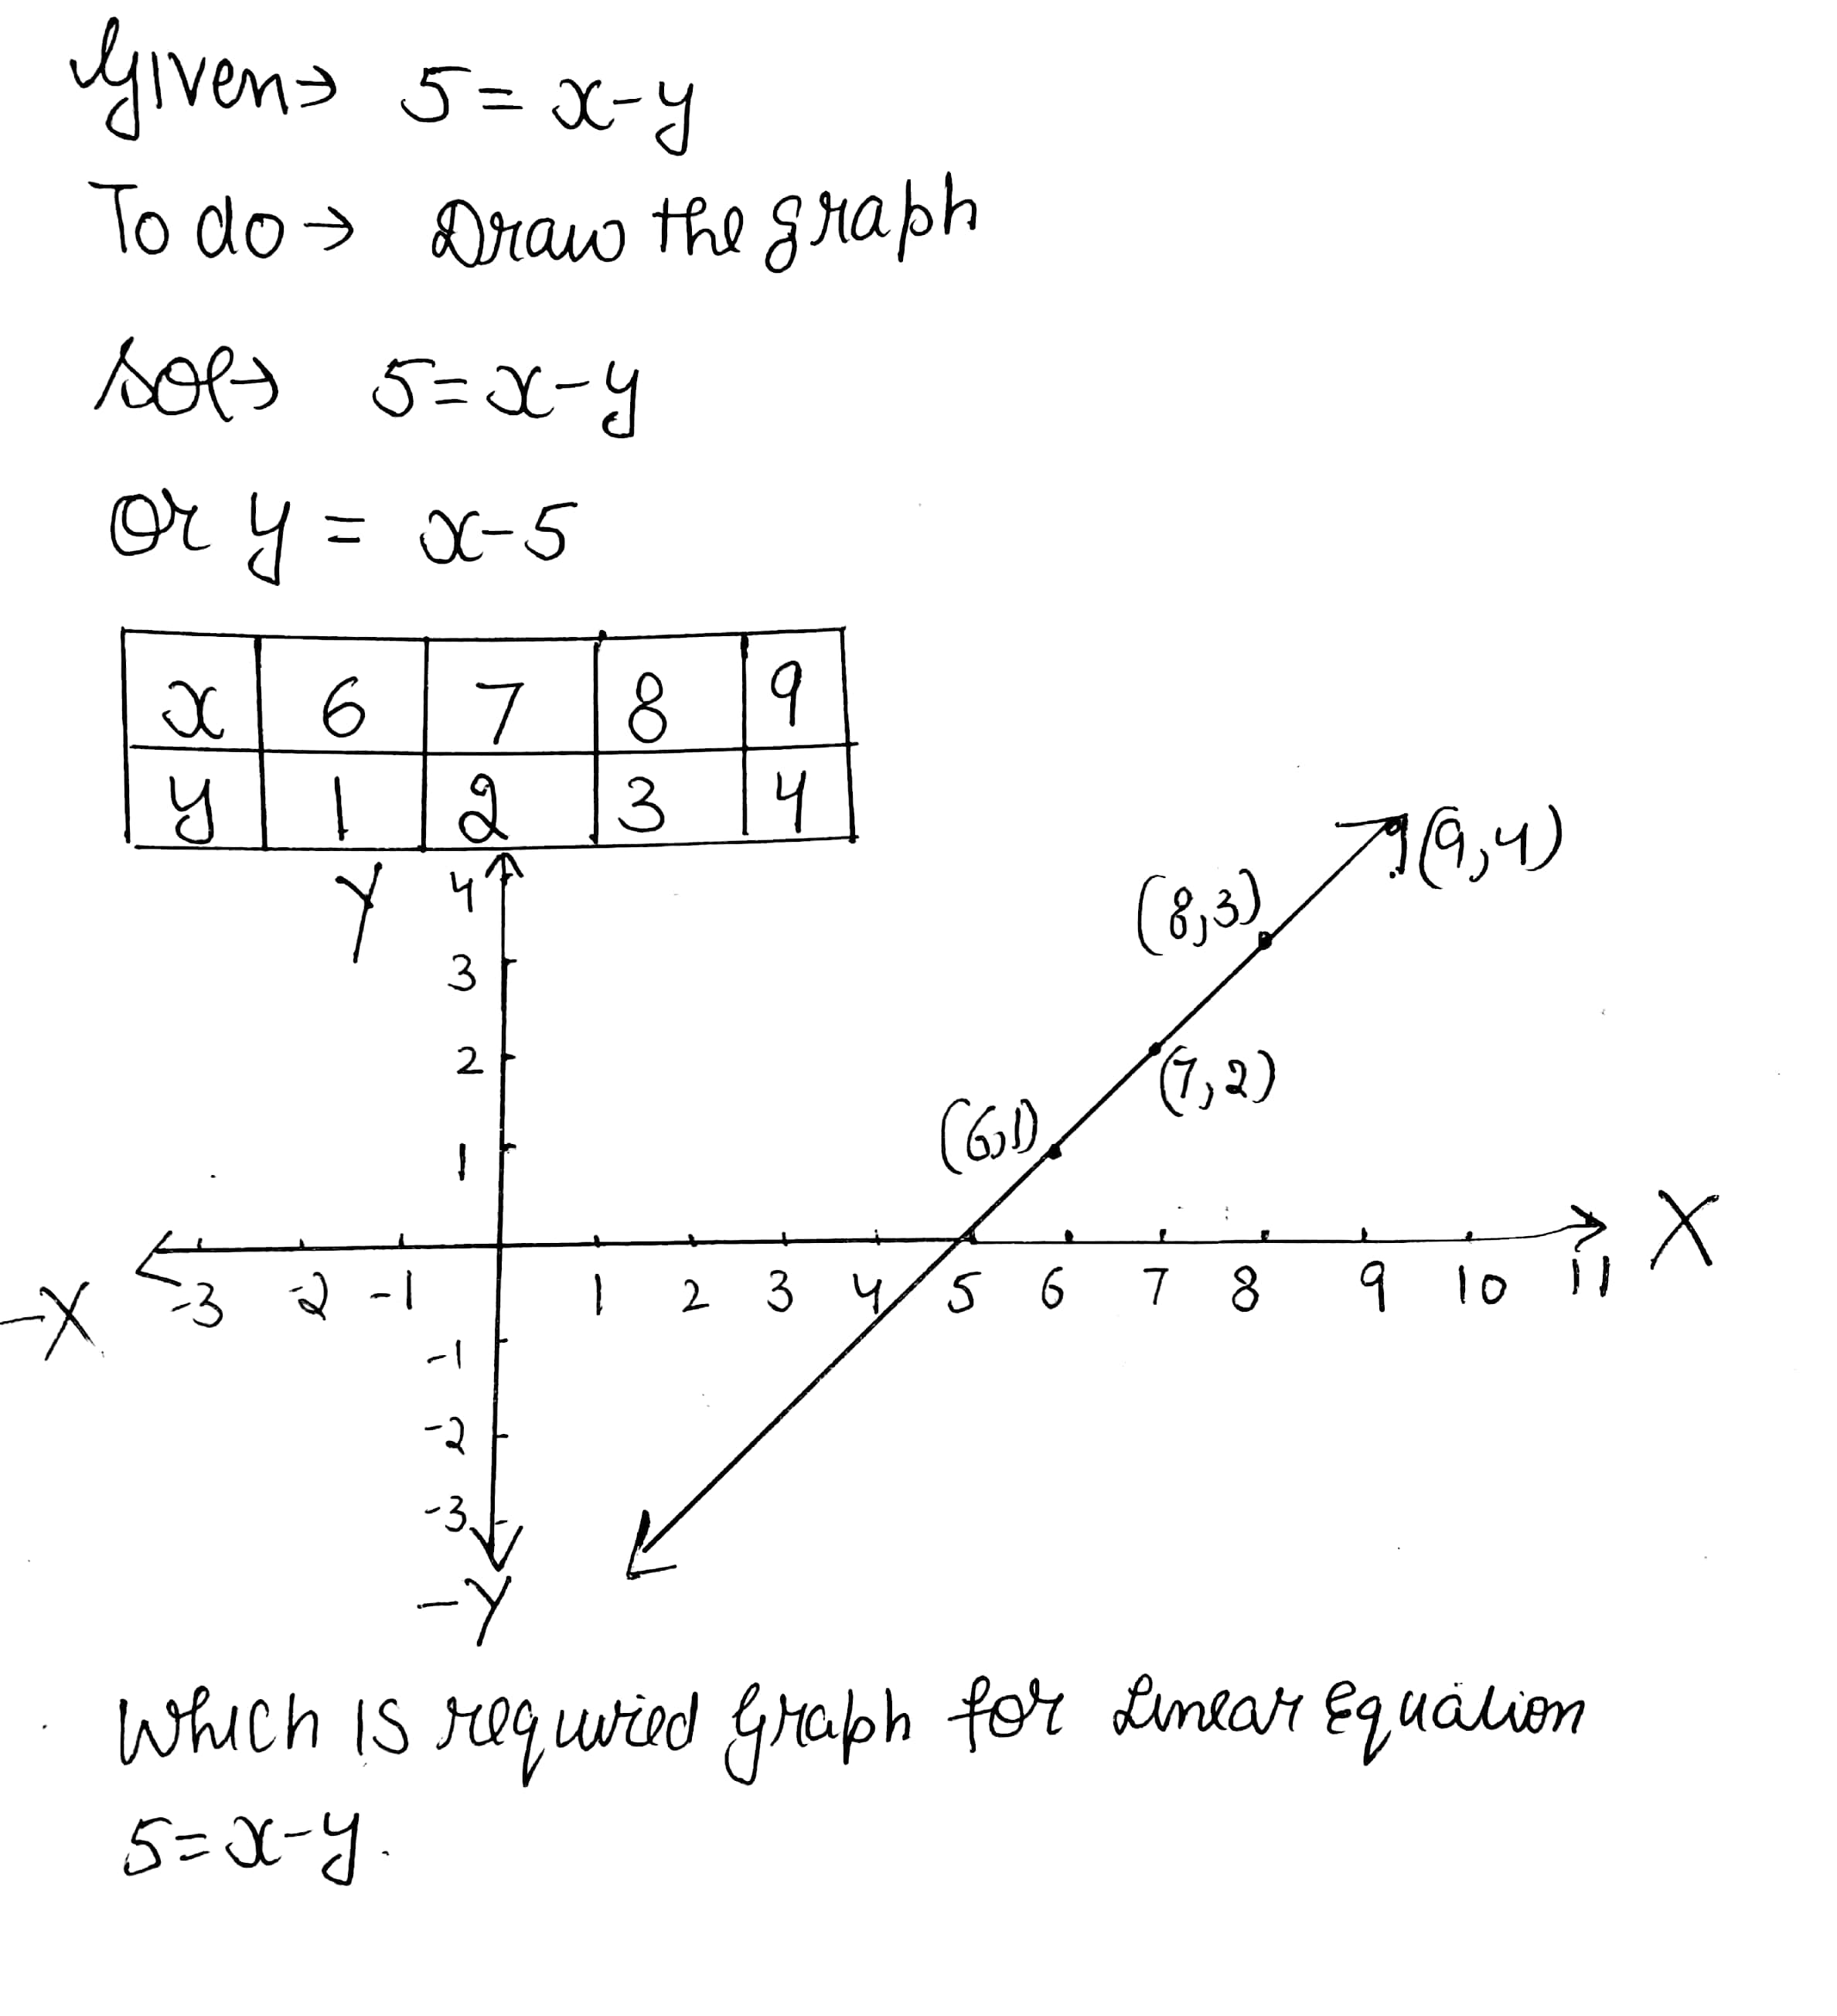 Given⇒ 5=x-y
To do→ Draw the graph
Sol→ 5=x-y
Or y = x-5
x 6 7 8 9
y 1 2 3 4
Y 4
(9,4)
(8,3)
3
2
(7,2)
(6,1)
1
X
-X -3 -2 -1 1 2 3 4 5 6 7 8 9 10 11
-1
-2
-3
-Y
Which is required graph for Linear Equation
5=x-y.